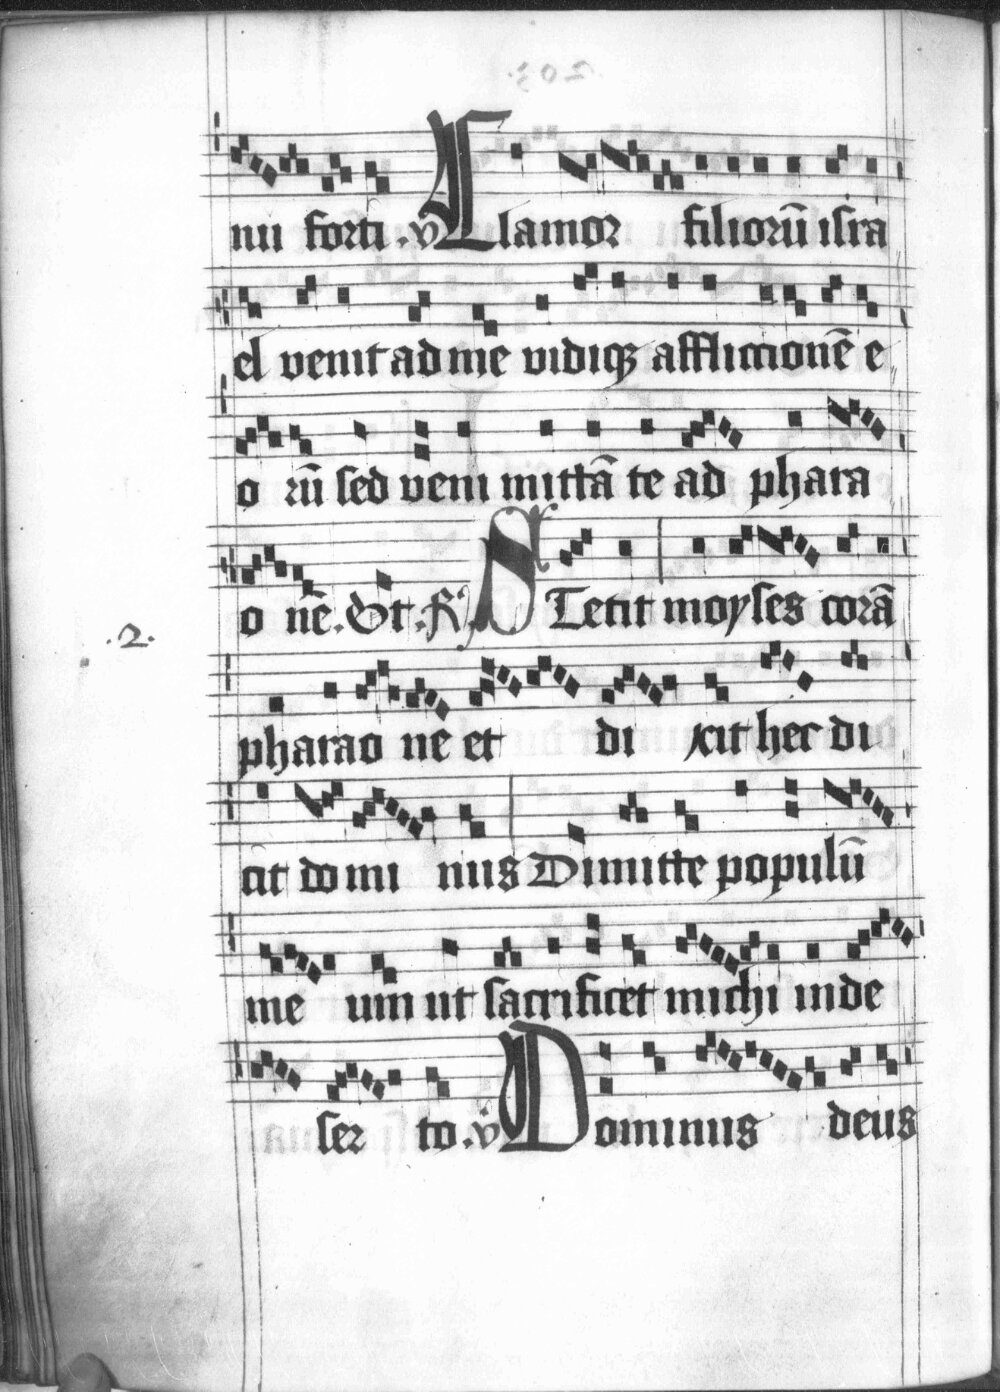 nu forti . v Clamor filiorū isra
el venit ad me vidiqꝫ afflictionē e
o rū sed veni mittā te ad phara
o nē . Et . R̃ . STetit moyses corā
.2.
pharao ne et di xit hec di
cit do mi nus Dimitte populū
me um ut sacrificet michi inde
ser to . v Dominus deus